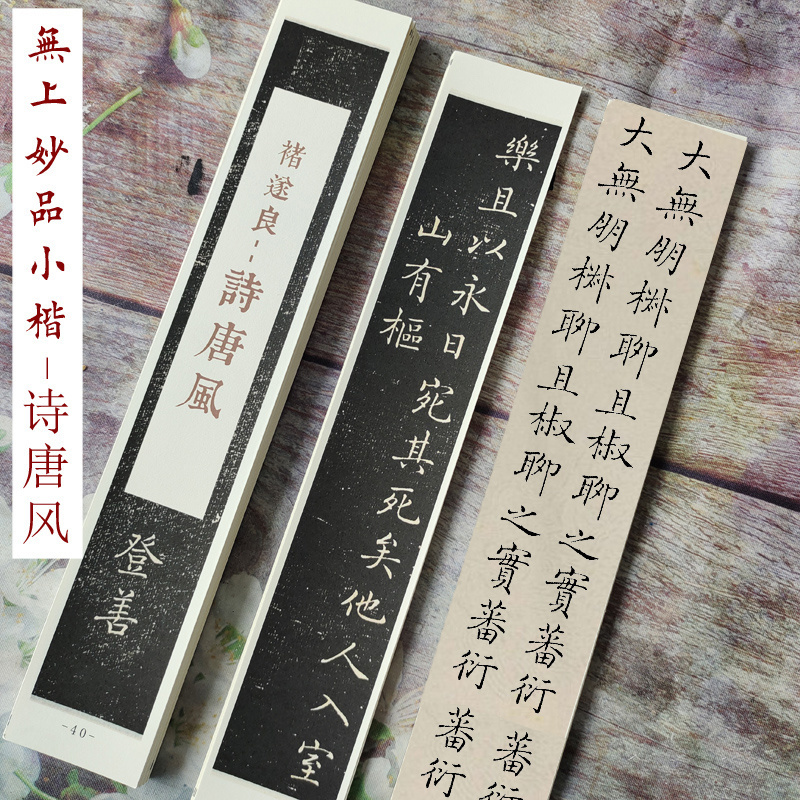 無上妙品小楷—诗唐风
褚遂良--詩唐風
登善
-40-
樂且以永日宛其死矣他人入室
山有樞
大無朋椒聊且椒聊之實蕃衍蕃衍
大無朋椒聊且椒聊之實蕃衍蕃衍